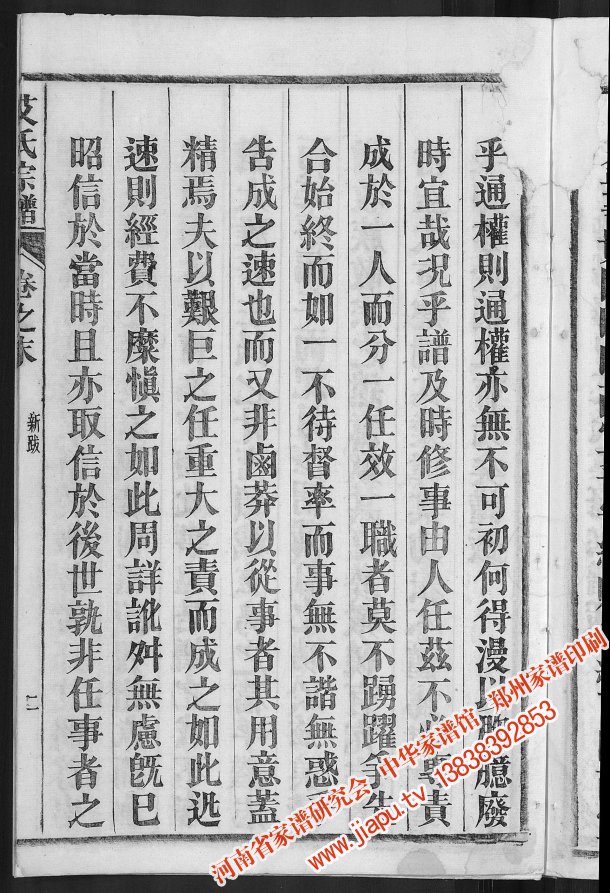 乎通權則通權亦無不可初何得漫以臆廢
時宜哉況乎譜及時修事由人任茲不必專責
成於一人而分一任效一職者莫不踴躍爭先
合始終而如一不待督率而事無不諧無惑
告成之速也而又非鹵莽以從事者其用意蓋
精焉夫以艱巨之任重大之責而成之如此迅
速則經費不糜慎之如此周詳訛舛無慮旣已
昭信於當時且亦取信於後世孰非任事者之
氏宗譜
卷之末
新跋
二
河南省家谱研究会 中华家谱馆 郑州家谱印刷
www.jiapu.tv 13838392853